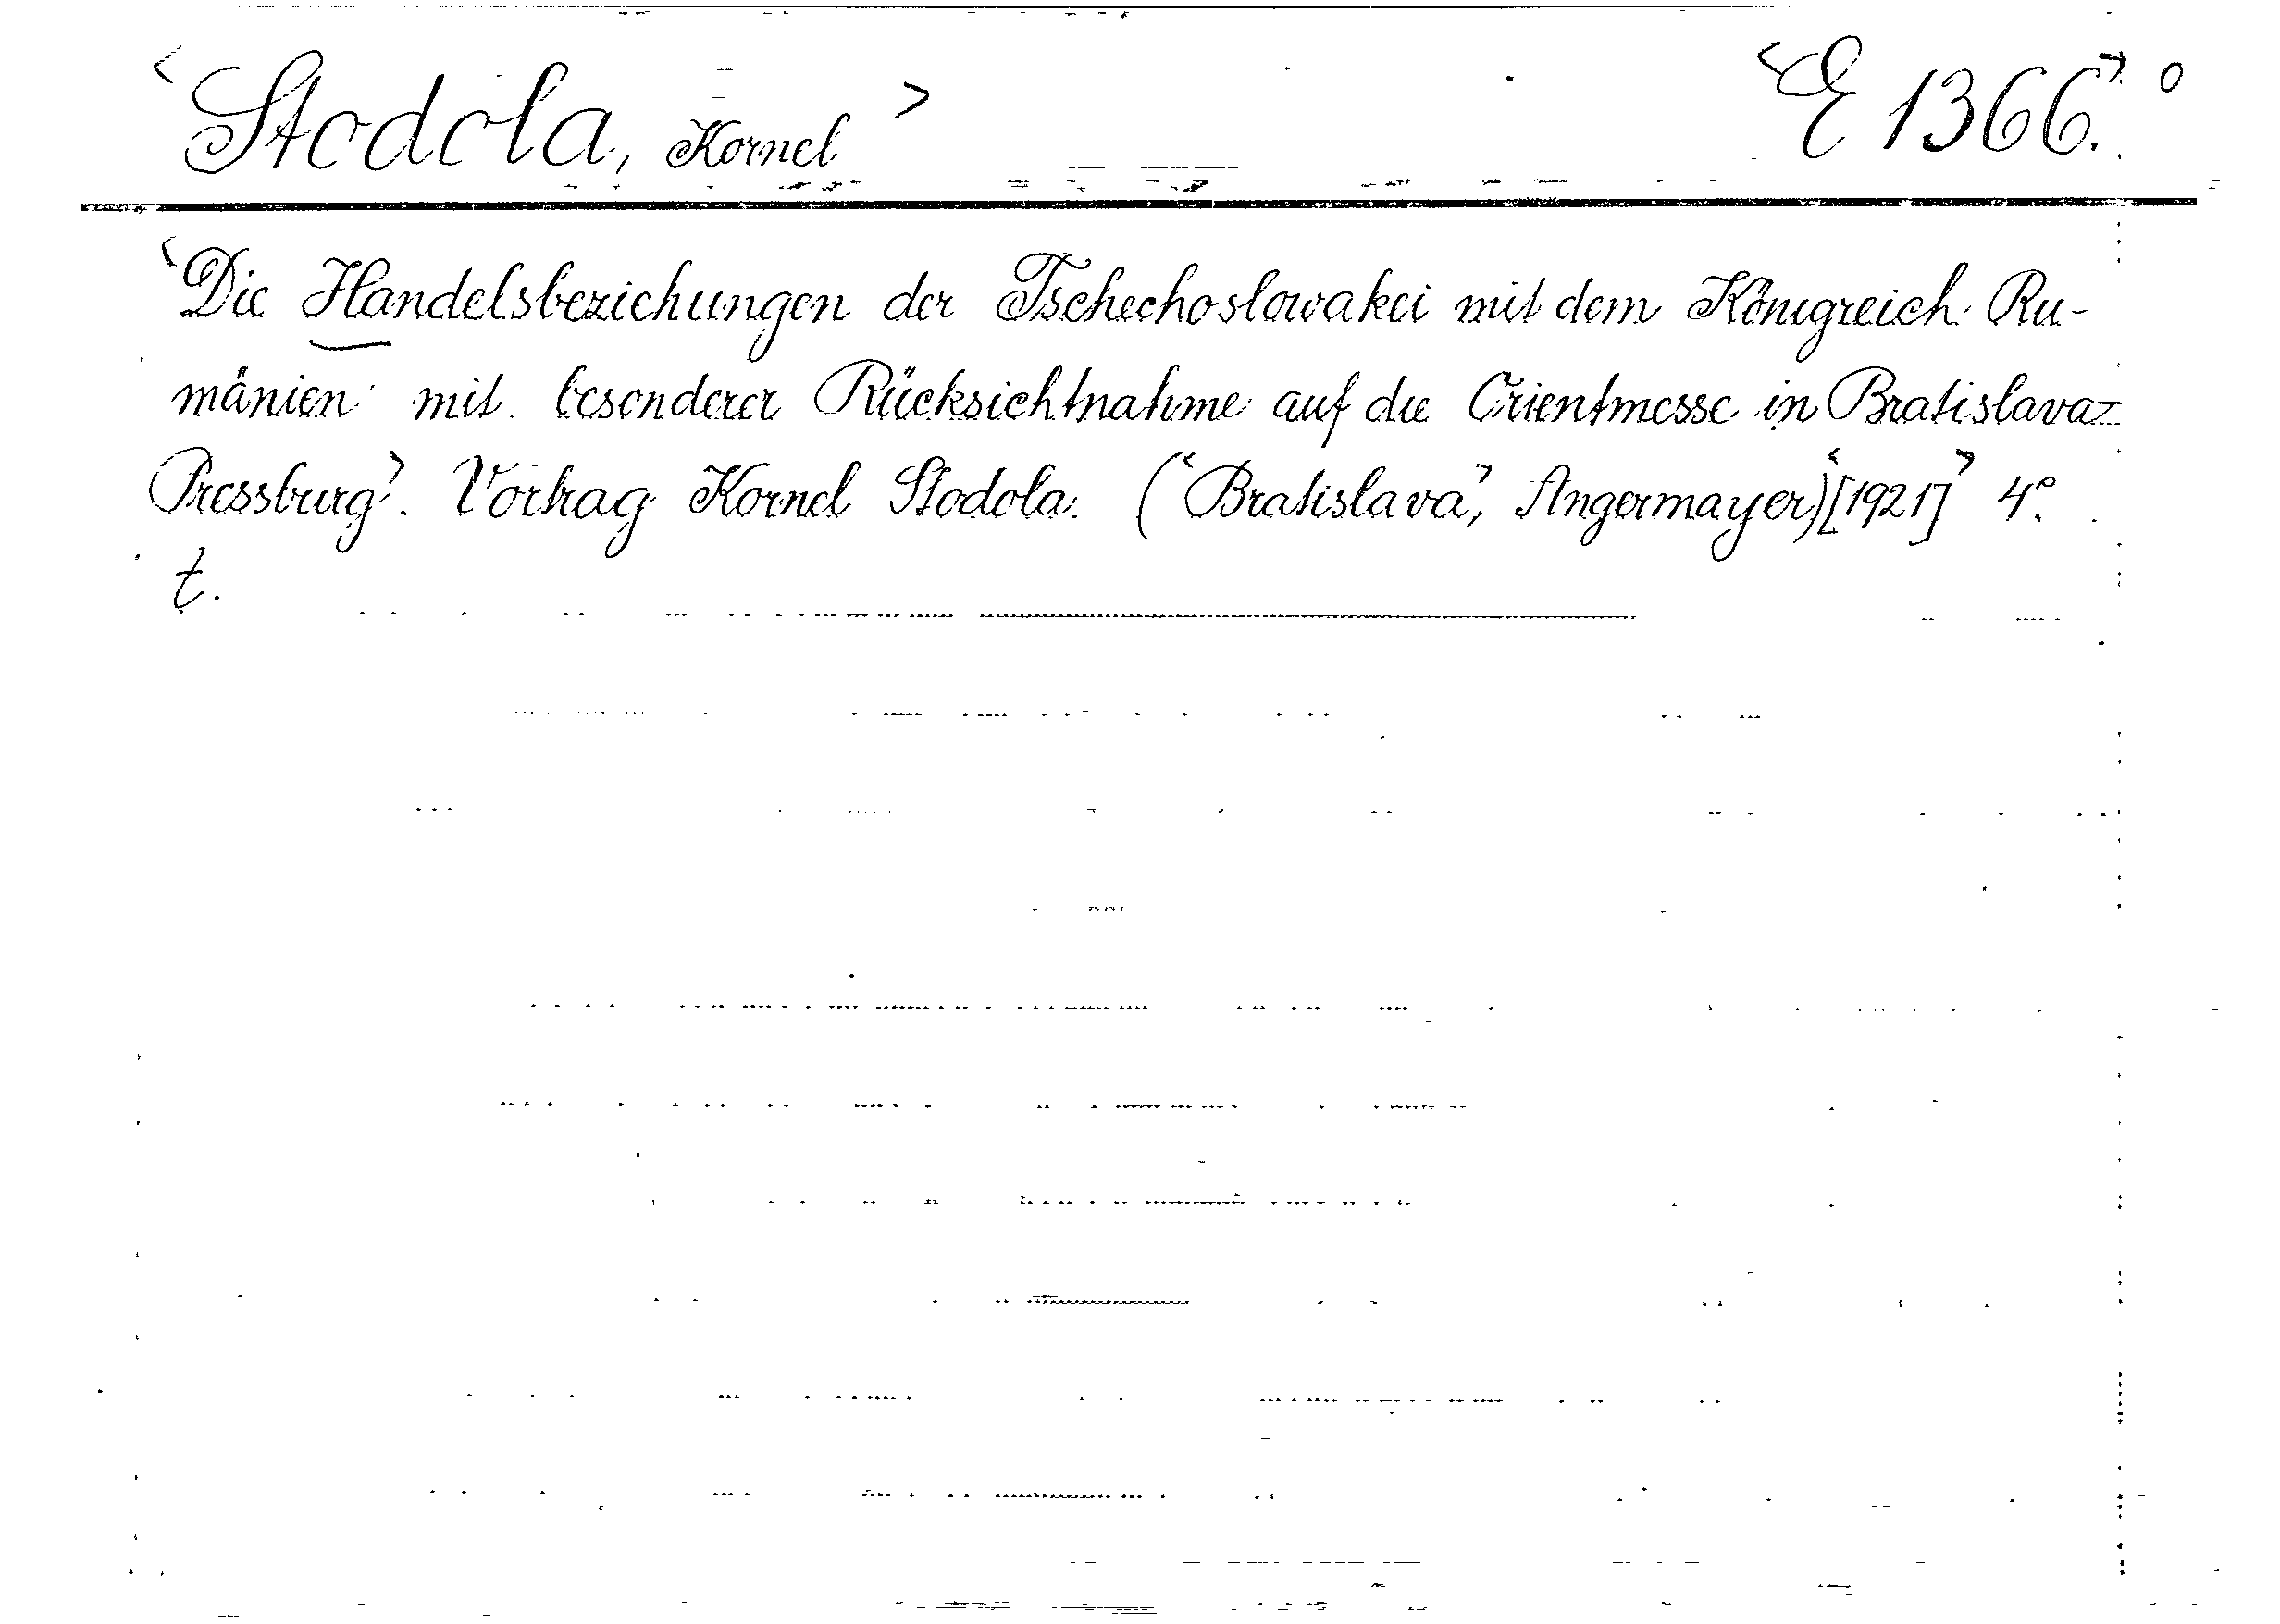 <Stodola, Kornel> <E 1366.>°
<Die Handelsbeziehungen der Tschechoslowakei mit dem Königreich Ru-
mänien mit besonderer Rücksichtnahme auf die Orientmesse in Bratislava-
Pressburg>. Vortrag Kornel Stodola. (<Bratislava>, Angermayer)<[1921]> 4°.
t.